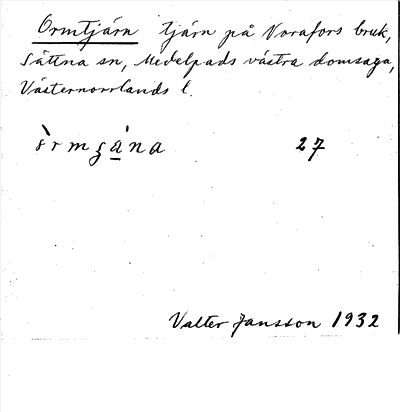 Ormtjärn tjärn på Norafors bruk,
Sättna sn, Medelpads västra domsaga,
Västernorrlands l.
27
Valter Jansson 1932